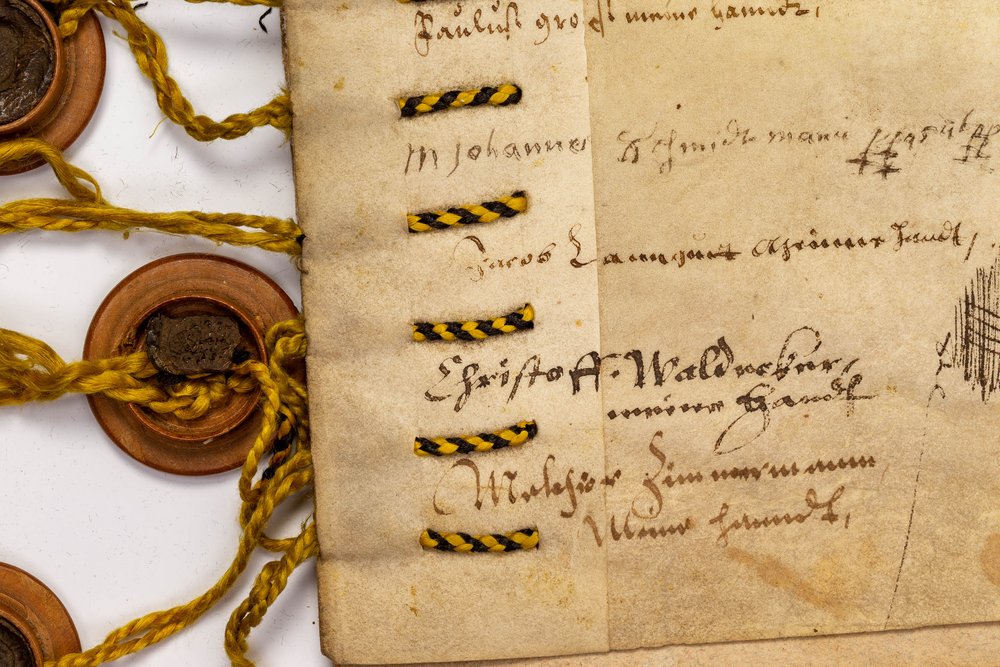 Pauluß meine hanndt,
M Johannes Schmidt
Jacob meine handt,
Christoff Waldecker,
meine Handt
Melchior Zimmermann,
Meine hanndt,